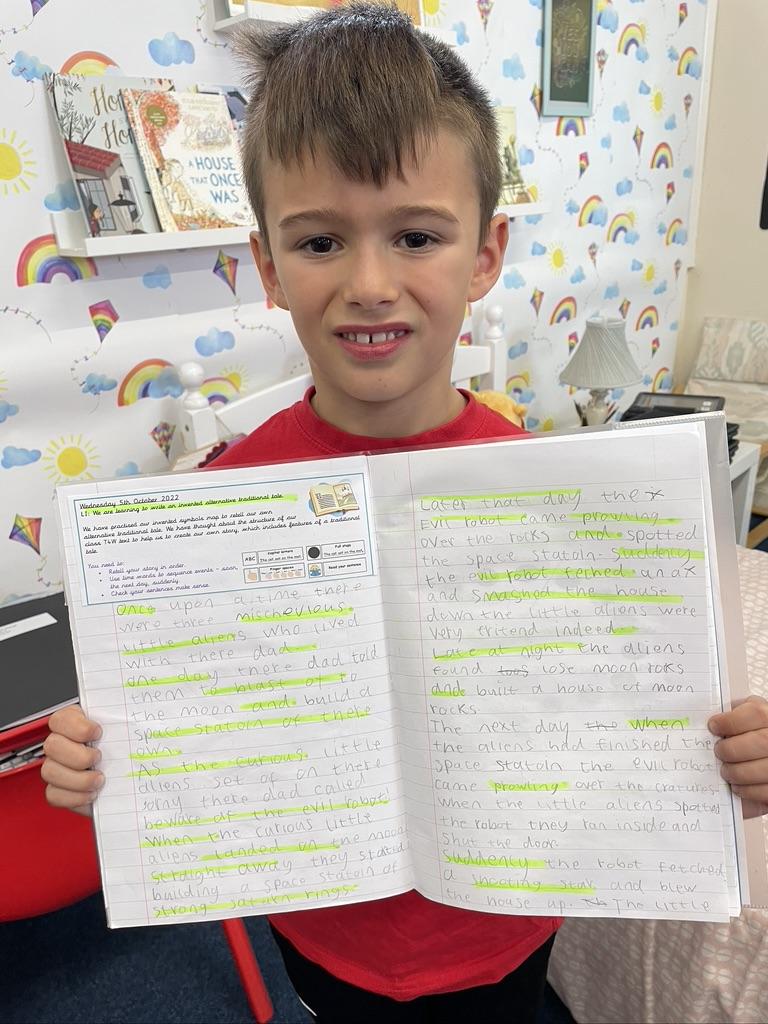 A HOUSE
THAT ONCE
WAS
Wednesday 5th October 2022
LI: We are learning to write an invented alternative traditional tale.
We have practised our invented symbols map to retell our own
alternative traditional tale. We have thought about the structure of our
class T4W text to help us create our own story, which includes features of a traditional
tale.
You need to:
Retell your story in order.
Use time words to sequence events - soon,
the next day, suddenly
Check your sentences make sense.
ABC
Capital letters
Full stops
Finger spaces
Read your sentence
Once upon a time there
were three mischevious
little aliens who lived
with there dad.
one day there dad told
them to blast of to
the moon and build a
space statoin of there
own.
As the curious little
aliens set of on there
joray there dad called
beware of the evil robot!
When the curious little
aliens landed on the moon
straight away they started
building a space statoin of
strong saturn rings.
Later that day the
Evil robot came prowling
over the rocks and spotted
the space statoin. Suddenly
the evil robot feched an ax
and smashed the house
down the little aliens were
very fritend indeed.
Late at night the aliens
found lose moon roks
and built a house of moon
rocks.
The next day the when
the aliens had finished the
space statoin the evil robot
came prowling over the cratures
when the little aliens spotted
the robot they ran inside and
shut the door.
Suddenly the robot fetched
a shooting star and blew
the house up. The little